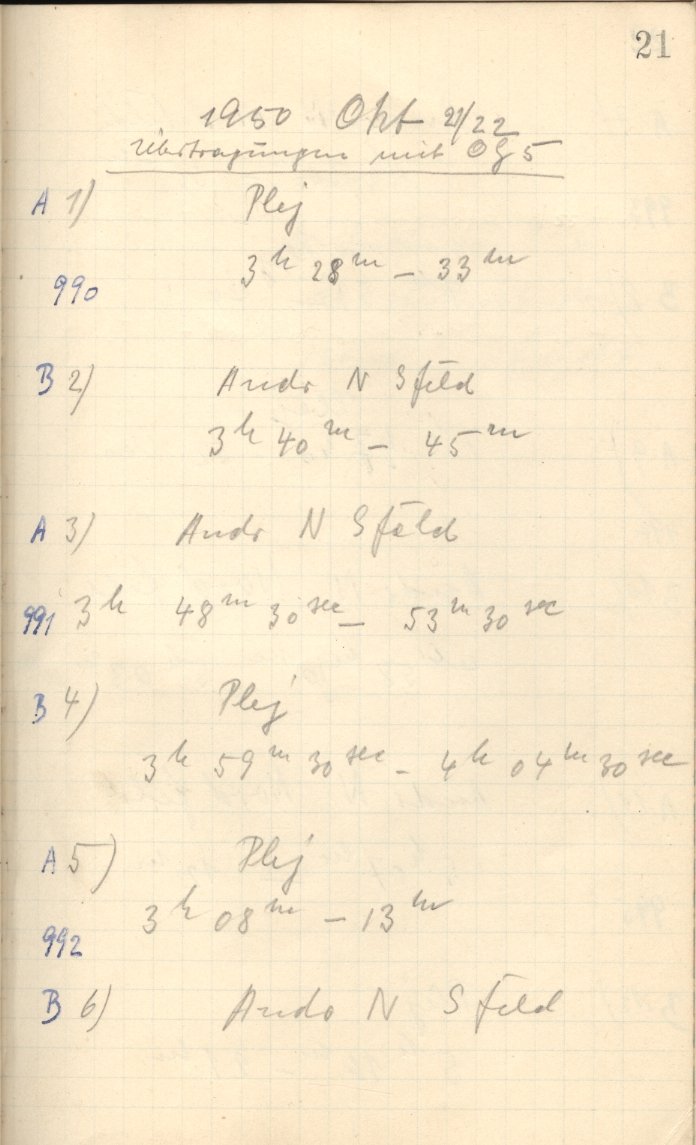 21
1950 Okt 21/22
Übertragungen mit OG5
A 1) Plej
3h 28m – 33m
990
B 2) Andr N Sfeld
3h 40m – 45m
A 3) Andr N Sfeld
991 3h 48m 30sec – 53m 30sec
B 4) Plej
3h 59m 30sec – 4h 04m 30sec
A 5) Plej
3h 08m – 13m
992
B 6) Andr N S feld